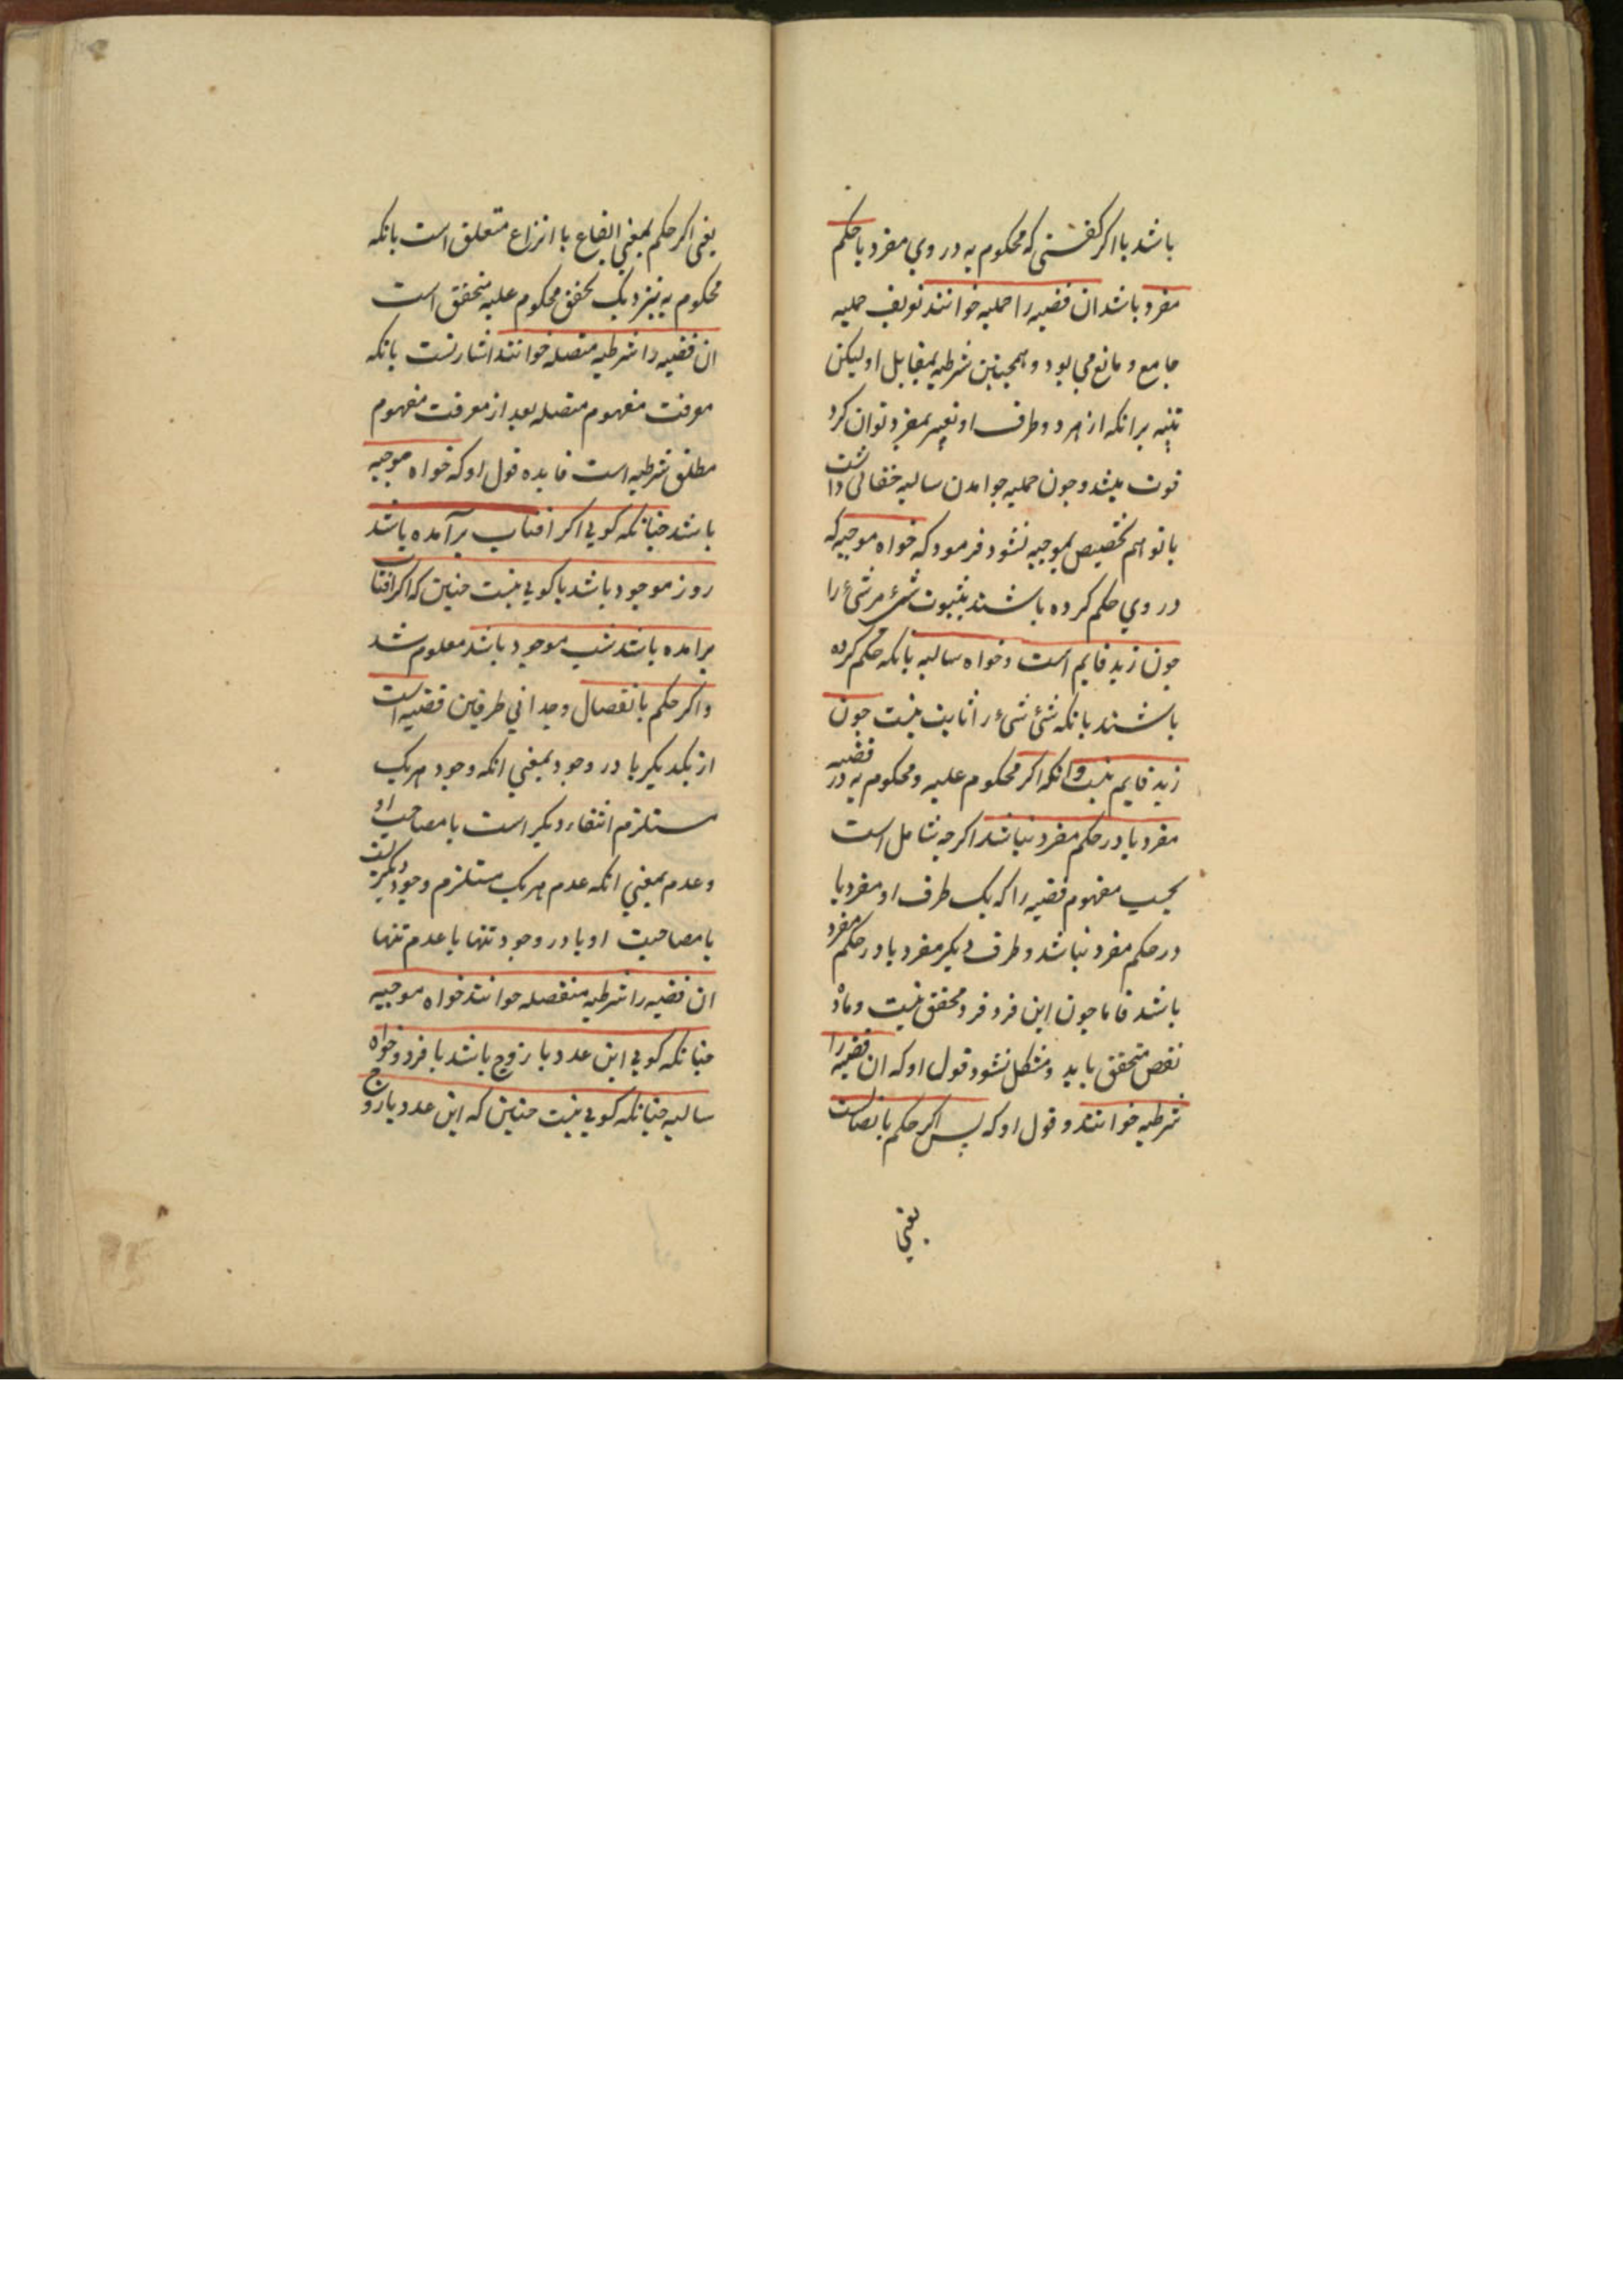 باشد یا اگر گفتی که محکوم به در وی مفرد یا حکم
مفرد باشد ان قضیه را حملیه خوانند تعریف حملیه
جامع و مانع می بود و همچنین شرطیه بمقابل او لیکن
تنبیه برانکه از هر دو طرف او تعبیر بمفرد توان کرد
فوت میشد و چون حملیه خواندن سالبه خفائی داشت
یا توهم تخصیص بموجبه نشود فرمود که خواه موجبه که
در وی حکم کرده باشند بثبوت شیء مر شیء را
چون زید قایم است و خواه سالبه بانکه حکم کرده
باشند بانکه شیء شیء را ثابت نیست چون
زید قایم نیست وانکه اگر محکوم علیه و محکوم به در قضیه
مفرد یا در حکم مفرد نباشند اگرچه شامل است
بحسب مفهوم قضیه را که یک طرف او مفرد یا
در حکم مفرد نباشد و طرف دیگر مفرد یا در حکم مفرد
باشد فاما چون این فرد فرد محقق نیست و ماده
نقض متحقق باید و مشکل نشود قول او که ان قضیه را
شرطیه خوانند و قول او که پس اگر حکم باتصالست
یعنی
یعنی اگر حکم بمعنی ایقاع یا انتزاع متعلق است بانکه
محکوم به بنزدیک تحقق محکوم علیه متحقق است
ان قضیه را شرطیه متصله خوانند اشارتست بانکه
معرفت مفهوم متصله بعد از معرفت مفهوم
مطلق شرطیه است فایده قول او که خواه موجبه
باشد چنانکه گویی اگر افتاب برآمده باشد
روز موجود باشد یا گویی نیست چنین که اگر افتاب
برامده باشد شب موجود باشد معلوم شد
واگر حکم بانفصال وجدانی طرفین قضیه است
از یکدیگر یا در وجود بمعنی انکه وجود هریک
مستلزم انتفاء دیگر است یا مصاحب او
وعدم بمعنی انکه عدم هریک مستلزم وجود دیگریست
یا مصاحبت او یا در وجود تنها یا عدم تنها
ان قضیه را شرطیه منفصله خوانند خواه موجبه
چنانکه گویی این عدد یا زوج باشد یا فرد و خواه
سالبه چنانکه گویی نیست چنین که این عدد یا زوج